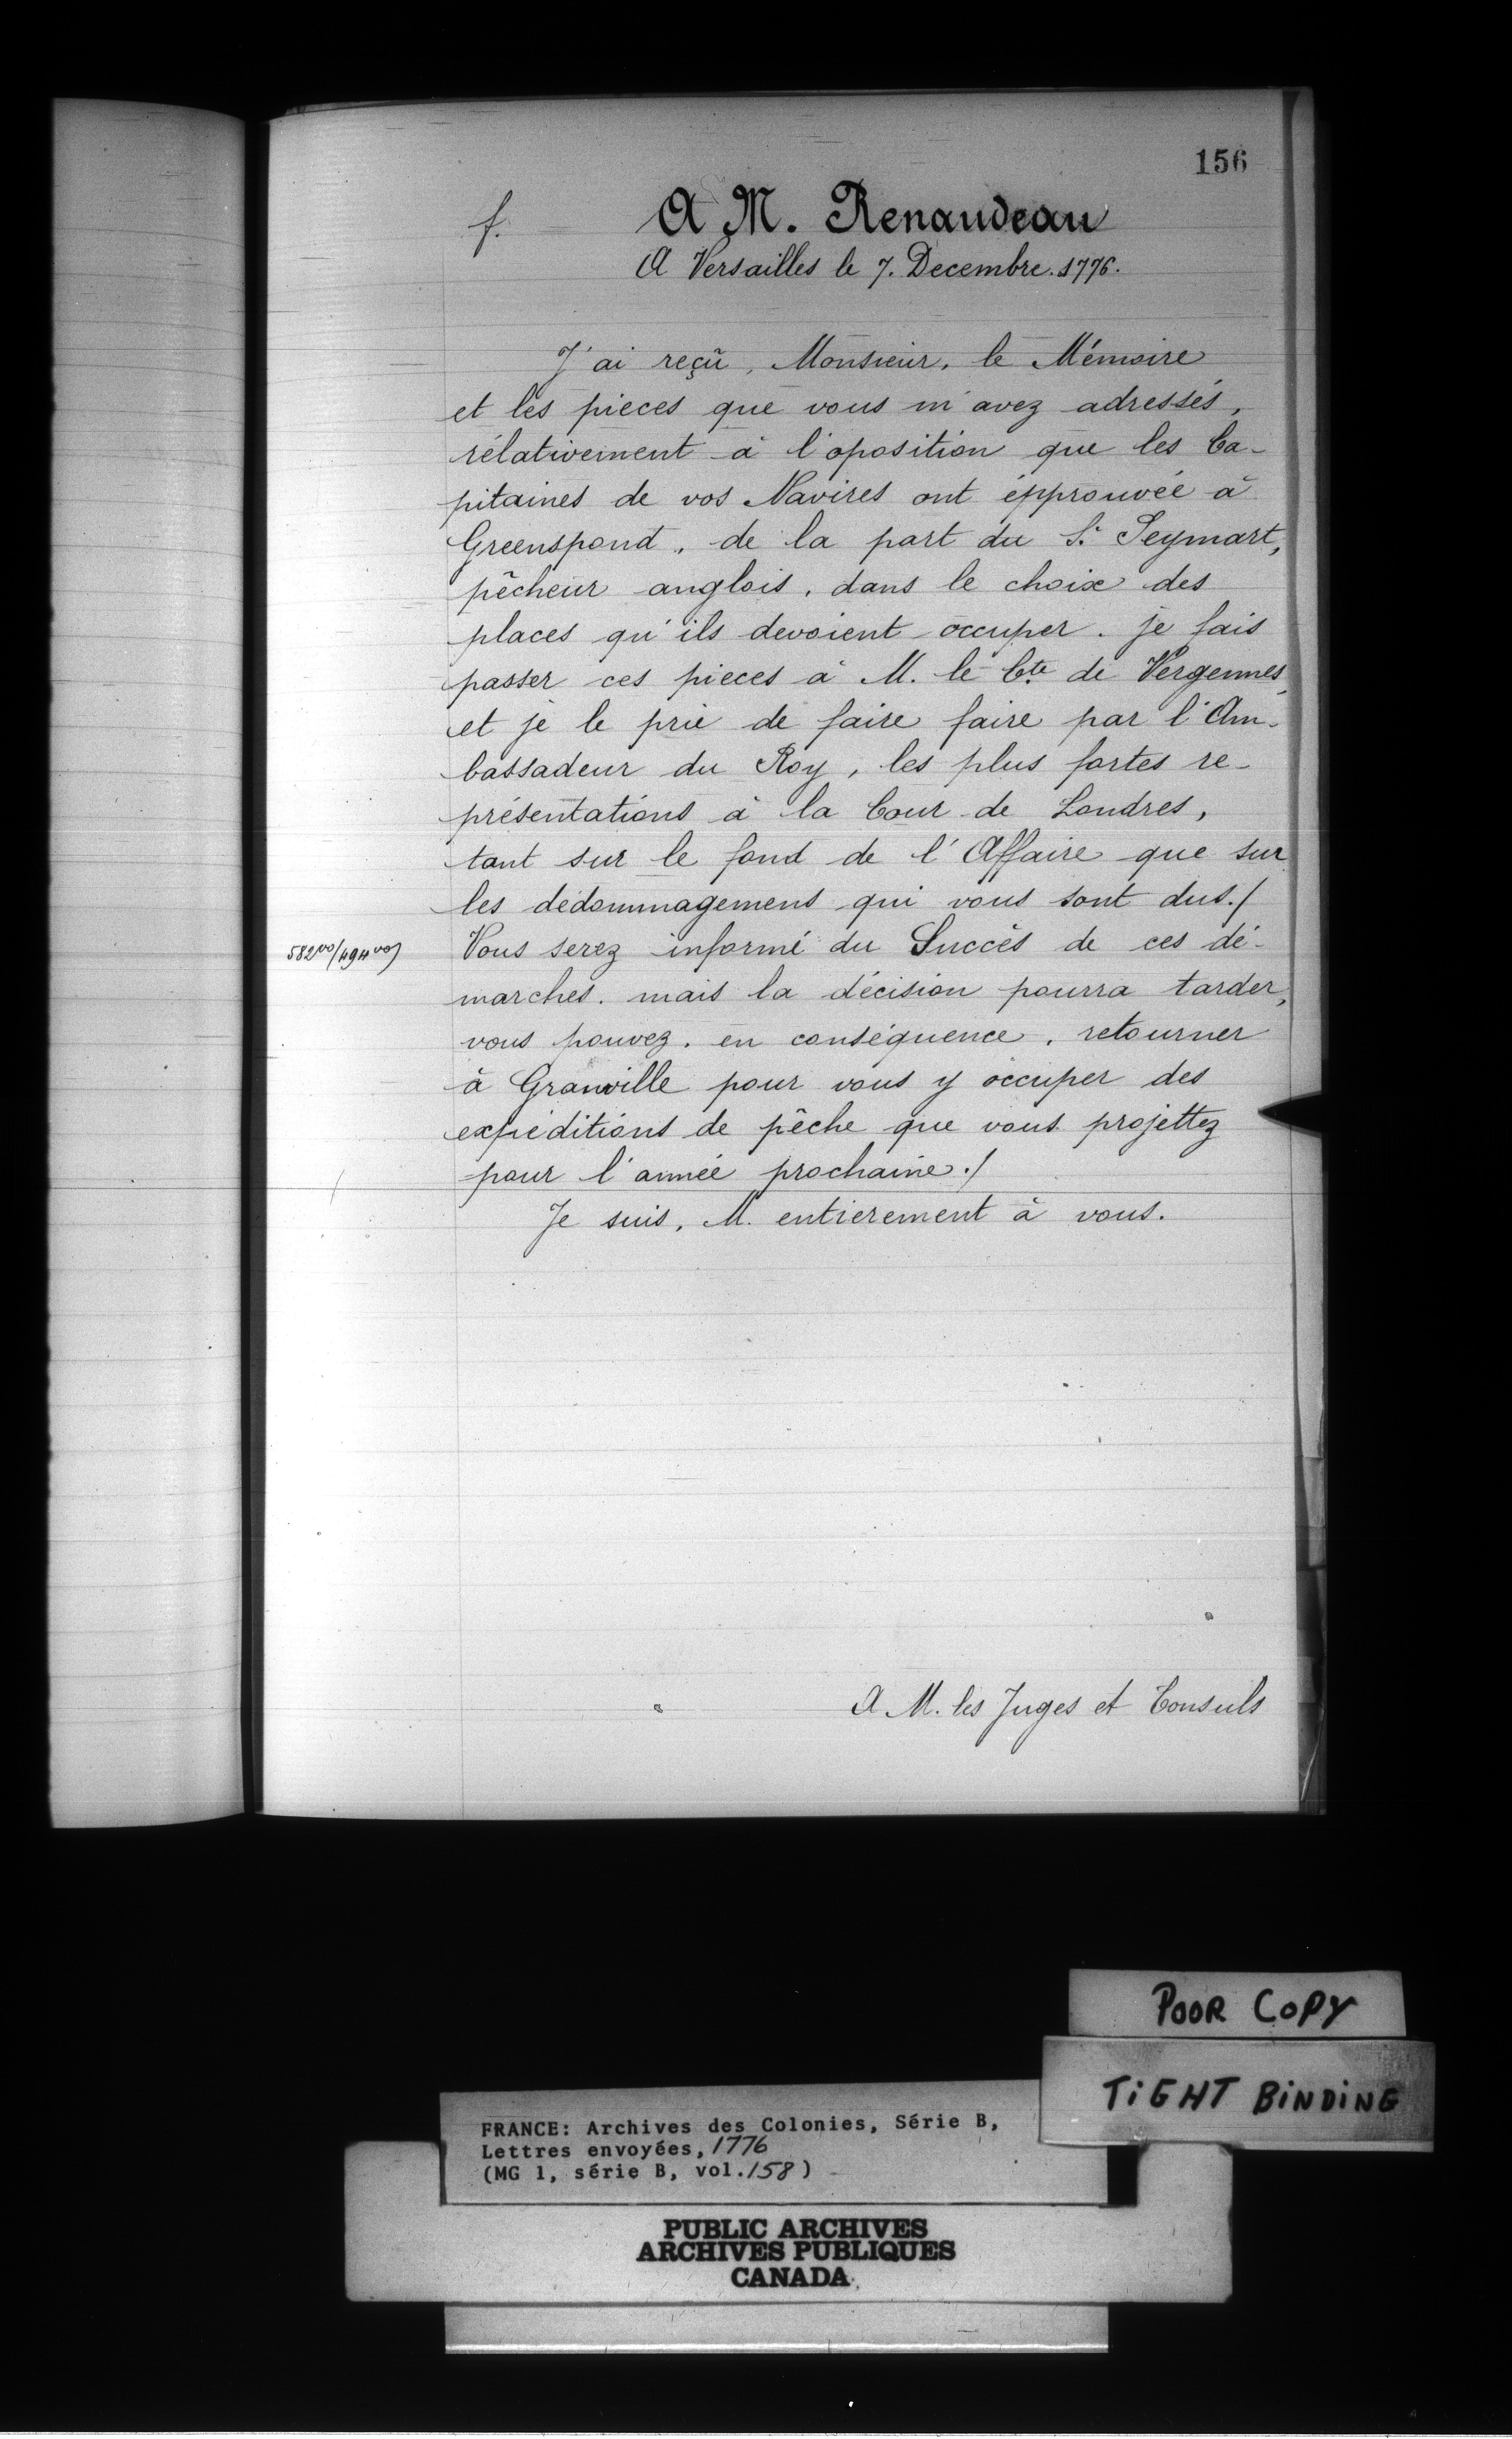 156
f.
A M. Renaudeau
A Versailles le 7. Decembre. 1776.
J'ai reçû, Monsieur, le Mémoire
et les pieces que vous m'avez adressés,
rélativement à l'oposition que les Ca-
pitaines de vos Navires ont épprouvée à
Greenspond, de la part du S.r Seymart,
pêcheur anglois, dans le choix des
places qu'ils devoient occuper. je fais
passer ces pieces à M. le Cte. de Vergennes,
et je le prie de faire faire par l'Am-
bassadeur du Roy, les plus fortes re-
présentations à la Cour de Londres,
tant sur le fond de l'Affaire que sur
les dédommagemens qui vous sont dus./
Vous serez informé du Succès de ces dé-
marches. mais la décision pourra tarder,
vous pouvez, en conséquence, retourner
à Granville pour vous y occuper des
expéditions de pêche que vous projettez
pour l'année prochaine./
Je suis, M. entierement à vous.
A M. les Juges et Consuls
POOR COPY
TIGHT BINDING
FRANCE: Archives des Colonies, Série B,
Lettres envoyées, 1776
(MG 1, série B, vol. 158)
PUBLIC ARCHIVES
ARCHIVES PUBLIQUES
CANADA